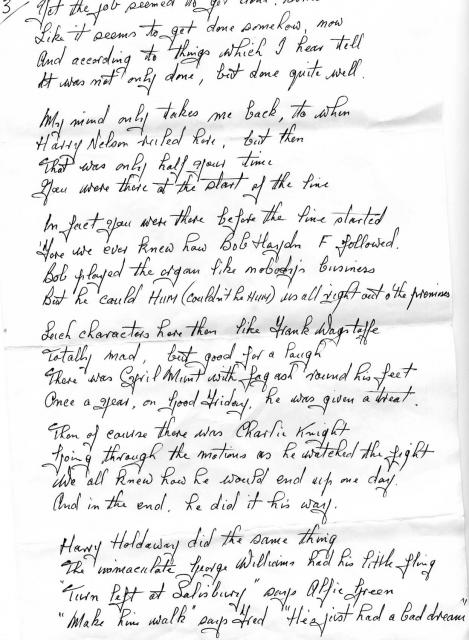 3/ Yet the job seemed to get done.
Like it seems to get done somehow, now
And according to things which I hear tell
It was not only done, but done quite well.
My mind only takes me back, to when
Harry Nelson ruled here, but then
That was only half your time
You were there at the start of the line
In fact you were there before the line started
'Fore we ever knew how Bob Haydn F followed.
Bob played the organ like nobodys business
But he could HUM (couldn't he HUM) us all right out o' the premises
Such characters here then like Frank Wagstaffe
Totally mad, but good for a laugh
There was Cyril Mint with fag ash 'round his feet
Once a year, on Good Friday, he was given a treat.
Then of course there was Charlie Knight
Going through the motions as he watched the fight
We all knew how he would end up one day.
And in the end, he did it his way.
Harry Holdaway did the same thing
The immaculate George Williams had his little fling
"Turn left at Salisbury" says Alfie Green
"Make him walk" says Fred "He's just had a bad dream"